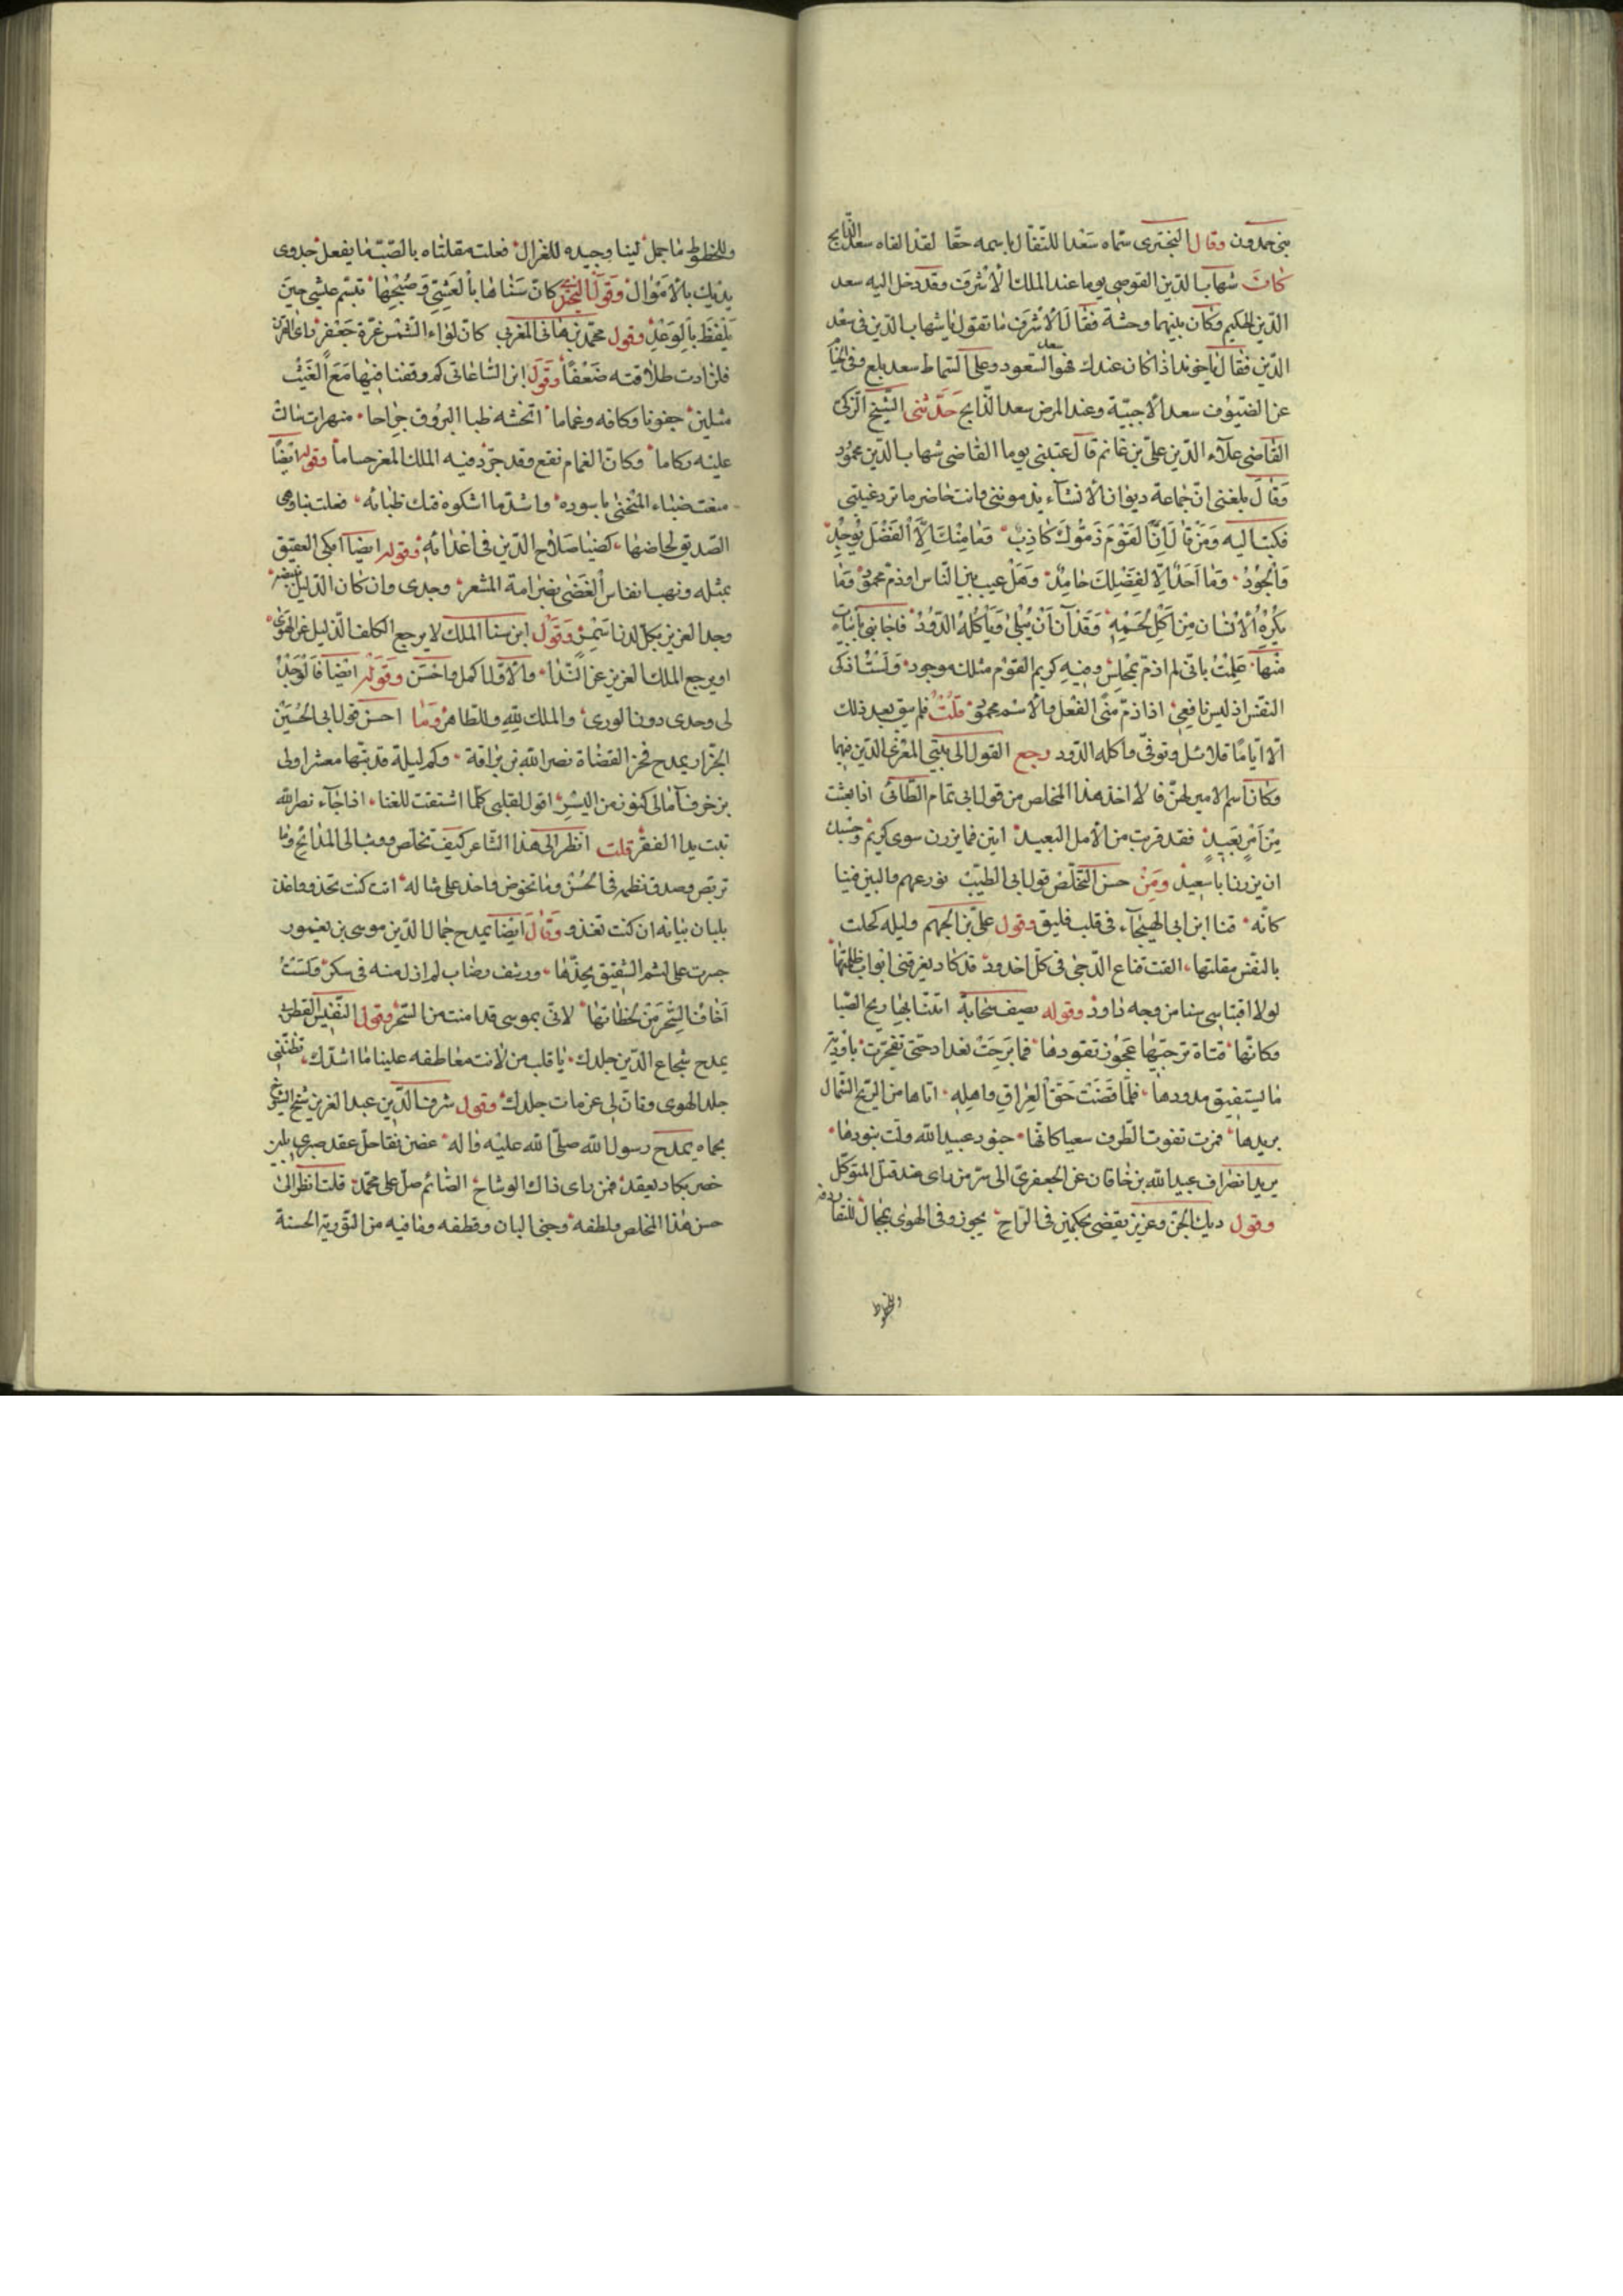 بنى حمدون وقال البحترى سماه سعدا للتفال باسمه حقا لقد القاه سعد الذابح
كان شهاب الدين القوصى يوما عند الملك الأشرف وقد دخل اليه سعد
الدين الحكيم وكان بينهما وحشة فقال الأشرف ما تقول يا شهاب الدين فى سعد
الدين فقال يا خوند اذا كان عندك فهو سعد السعود وعلى السماط سعد بلع وفى الخبا
عن الضيوف سعد الاخبية وعند المرض سعد الذابح حدثنى الشيخ الزكى
القاضى علآء الدين على بن غانم قال عتبنى يوما القاضى شهاب الدين محمود
وقال بلغنى ان جماعة ديوان الانشآء يذمونى وانت حاضر ما ترد غيبتى
فكتبت اليه ومن قال ان القوم ذموك كاذب وما منك الا الفضل يوجد
والجود وما احد الا لفضلك حامد وهل عيب بين الناس او ذم محمود وما
يكره الانسان من اكل لحمه وقد آن ان يبلى ويأكله الدود فاجابنى بابيات
منها علمت بانى لم اذم بمجلس وفيه كريم القوم مثلك موجود ولست ازكى
النفس اذ ليس نافعى اذا ذم منى الفعل والاسم محمود قلت فلم يبق بعد ذلك
الا اياما قلائل وتوفى واكله الدود رجع القول الى بيتى المغربى الذين فيهما
وكان اسم الامير لحن فا لا اخذ هذا المخلص من قول ابى تمام الطائى اذا بعثت
من امر بعيد فقد قربت من الأمل البعيد ابين فما يزرن سوى كريم وحسبك
ان يزرنا با سعيد ومن حسن التخلص قول ابى الطيب نودعهم والبين فينا
كانه قنا ابن ابى الهيجآء فى قلب فيلق وقول على بن الجهم وليله كحلت
بالنقس مقلتها القت قناع الدجى فى كل اخدود قد كاد يغرقنى ابواب ظلمتها
لولا اقتباسى سنا من وجه داود وقوله يصف سحابة اتتنا بها ريح الصبا
وكانها فتاة ترجيها عجوز تقودها فما برحت بغداد حتى تفجرت باودية
ما يستفيق مدودها فلما قضت حق العراق واهله اتاها من الريح الشمال
بريدها فمرت تفوت الطرف سعيا كانها جنود عبيد الله ولت بنودها
يريد انصراف عبيد الله بن خاقان عن الجعفرى الى سر من راى عند قتل المتوكل
وقول ديك الجن وعزيز يقضى بحكمين فى الراح يجوز وفى الهوى بمحال للنقا ردفه
وللخوط
وللخوط ما حمل لينا وجيده للغزال فعلت مقلتاه بالصب ما يفعل جدوى
يديك بالأموال وقول البحترى كان سناها بالعشى وصبحها تبسم عيسى حين
يلفظ بالوعد وقول محمد بن هانى المغربى كان لواء الشمس غرة جعفر راى القرن
فازدادت طلاقته ضعفا وقول ابن الساعاتى كم وقفنا فيها مع الغيث
مثلين جفونا وكافه وغماما اثخنته ظبا البروق جراحا
عليه ركاما وكان الغمام نقع وقد جرد فيه الملك المعز حساما وقوله ايضا
منعت ضباء المنحنى باسوده واشد ما اشكوه فتك ظبائه فعلت بنا وهى
الصديق لحاضها كضبا صلاح الدين فى اعدائه وقوله ايضا ابكى العقيق
بمثله ونهب انفاس الغضى بضرامة المتسعر وجدى وان كان الذليل
وجد العزيز بكل لدن اسمر وقول ابن سنا الملك لا يرجع الكلف الذليل عن الهوى
او يرجع الملك العزيز عن الندا والأول اكمل واحسن وقوله ايضا فالوجد
لى وحدى دون الورى والملك لله وللظاهر وما احسن قول ابى الحسين
الجزار يمدح فخر القضاة نصر الله بن بزاقة وكم ليلة قد بتها معسرا ولى
بزخرف آمالى كنوز من اليسر اقول لقلبى كلما اشتقت للغنا اذا جآء نصر الله
تبت يد الفقر قلت انظر الى هذا الشاعر كيف تخلص ووثب الى المدائح وما
تربص وصدق نظمه فى الحسن وما تخرص واحذ على مثاله ان كنت تحذو واغذ
بلبان بيانه ان كنت تغذو وقال ايضا يمدح جمال الدين موسى بن يغمور
جسرت على لثم الشقيق بخدها ورشف رضاب لم ازل منه فى سكر ولست
اخاف السحر من لحظاتها لانى بموسى قد امنت من السحر وقول النفيس القطرسى
يمدح شجاع الدين جلدك يا قلب من لانت معاطفه علينا ما اشدك تظننى
جلد الهوى وان لى عزمات جلدك وقول شرف الدين عبد العزيز شيخ الشيوخ
بحماه يمدح رسول الله صلى الله عليه واله غصن نقا حل عقد صبرى بلين
خصر يكاد يعقد فمن راى ذاك الوشاح الصائم صل على محمد قلت انظر الى
حسن هذا المخلص ولطفه وجنى البان وقطفه وما فيه من التورية الحسنة